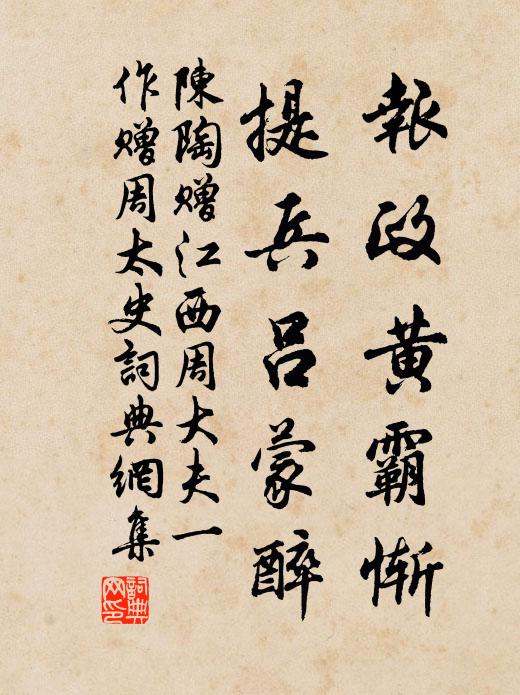 報政黃霸慚
提兵呂蒙醉
陳陶贈江西周大夫一
作贈周太史詞典網集
詞典网印